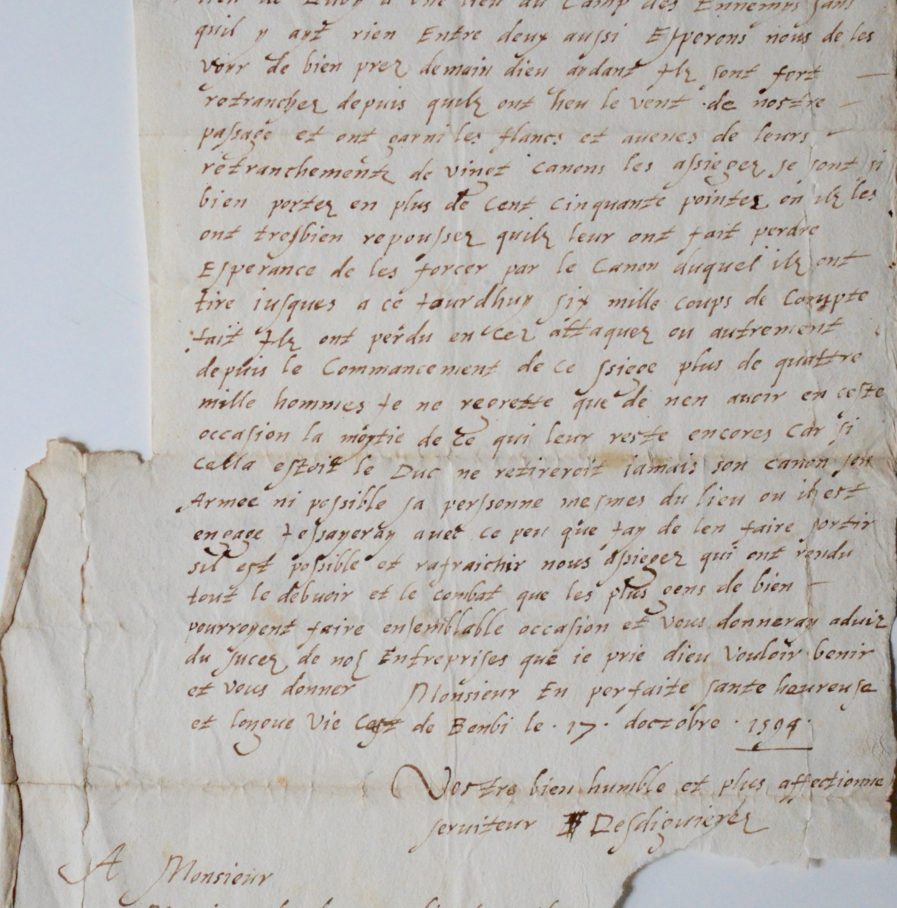 lieu du Camp des Ennemys sans
quil y ayt rien Entre deux aussi Esperons nous de les
voir de bien prez demain dieu aydant Ilz sont fort
retranchez depuis quilz ont heu le vent de nostre
passage et ont garni les flancs et avenes de leurs
retranchementz de vingt canons les assiegez se sont si
bien portez en plus de Cent cinquante pointes on ilz les
ont tresbien repoussez quilz leur ont fait perdre
Esperance de les forcer par le Canon duquel ilz ont
tire iusques a ce Iourdhuy six mille coups de Compte
fait Ilz ont perdu en cez attaquez ou autrement
depuis le Commancement de ce ssiege plus de quattre
mille hommes Ie ne regrette que de nen avoir en ceste
occasion la moytie de ce qui leur reste encores car si
cella estoit le Duc ne retireroit iamais son canon son
Armee ni possible sa perssonne mesmes du lieu ou il est
engage Iessayeray avec ce peu que Iay de len faire sortir
sil est possible et rafraichir nous assiegez qui ont rendu
tout le debvoir et le combat que les plus gens de bien
pourroyent faire ensemblable occasion et vous donneray adviz
du sucez de nos Entreprises que ie prie dieu vouloir benir
et vous donner Monsieur En perfaite sante heureuse
et longue vie Cest de Benbi le 17 doctobre 1594
Vostre bien humble et plus affectionne
serviteur Lesdiguieres
A Monsieur